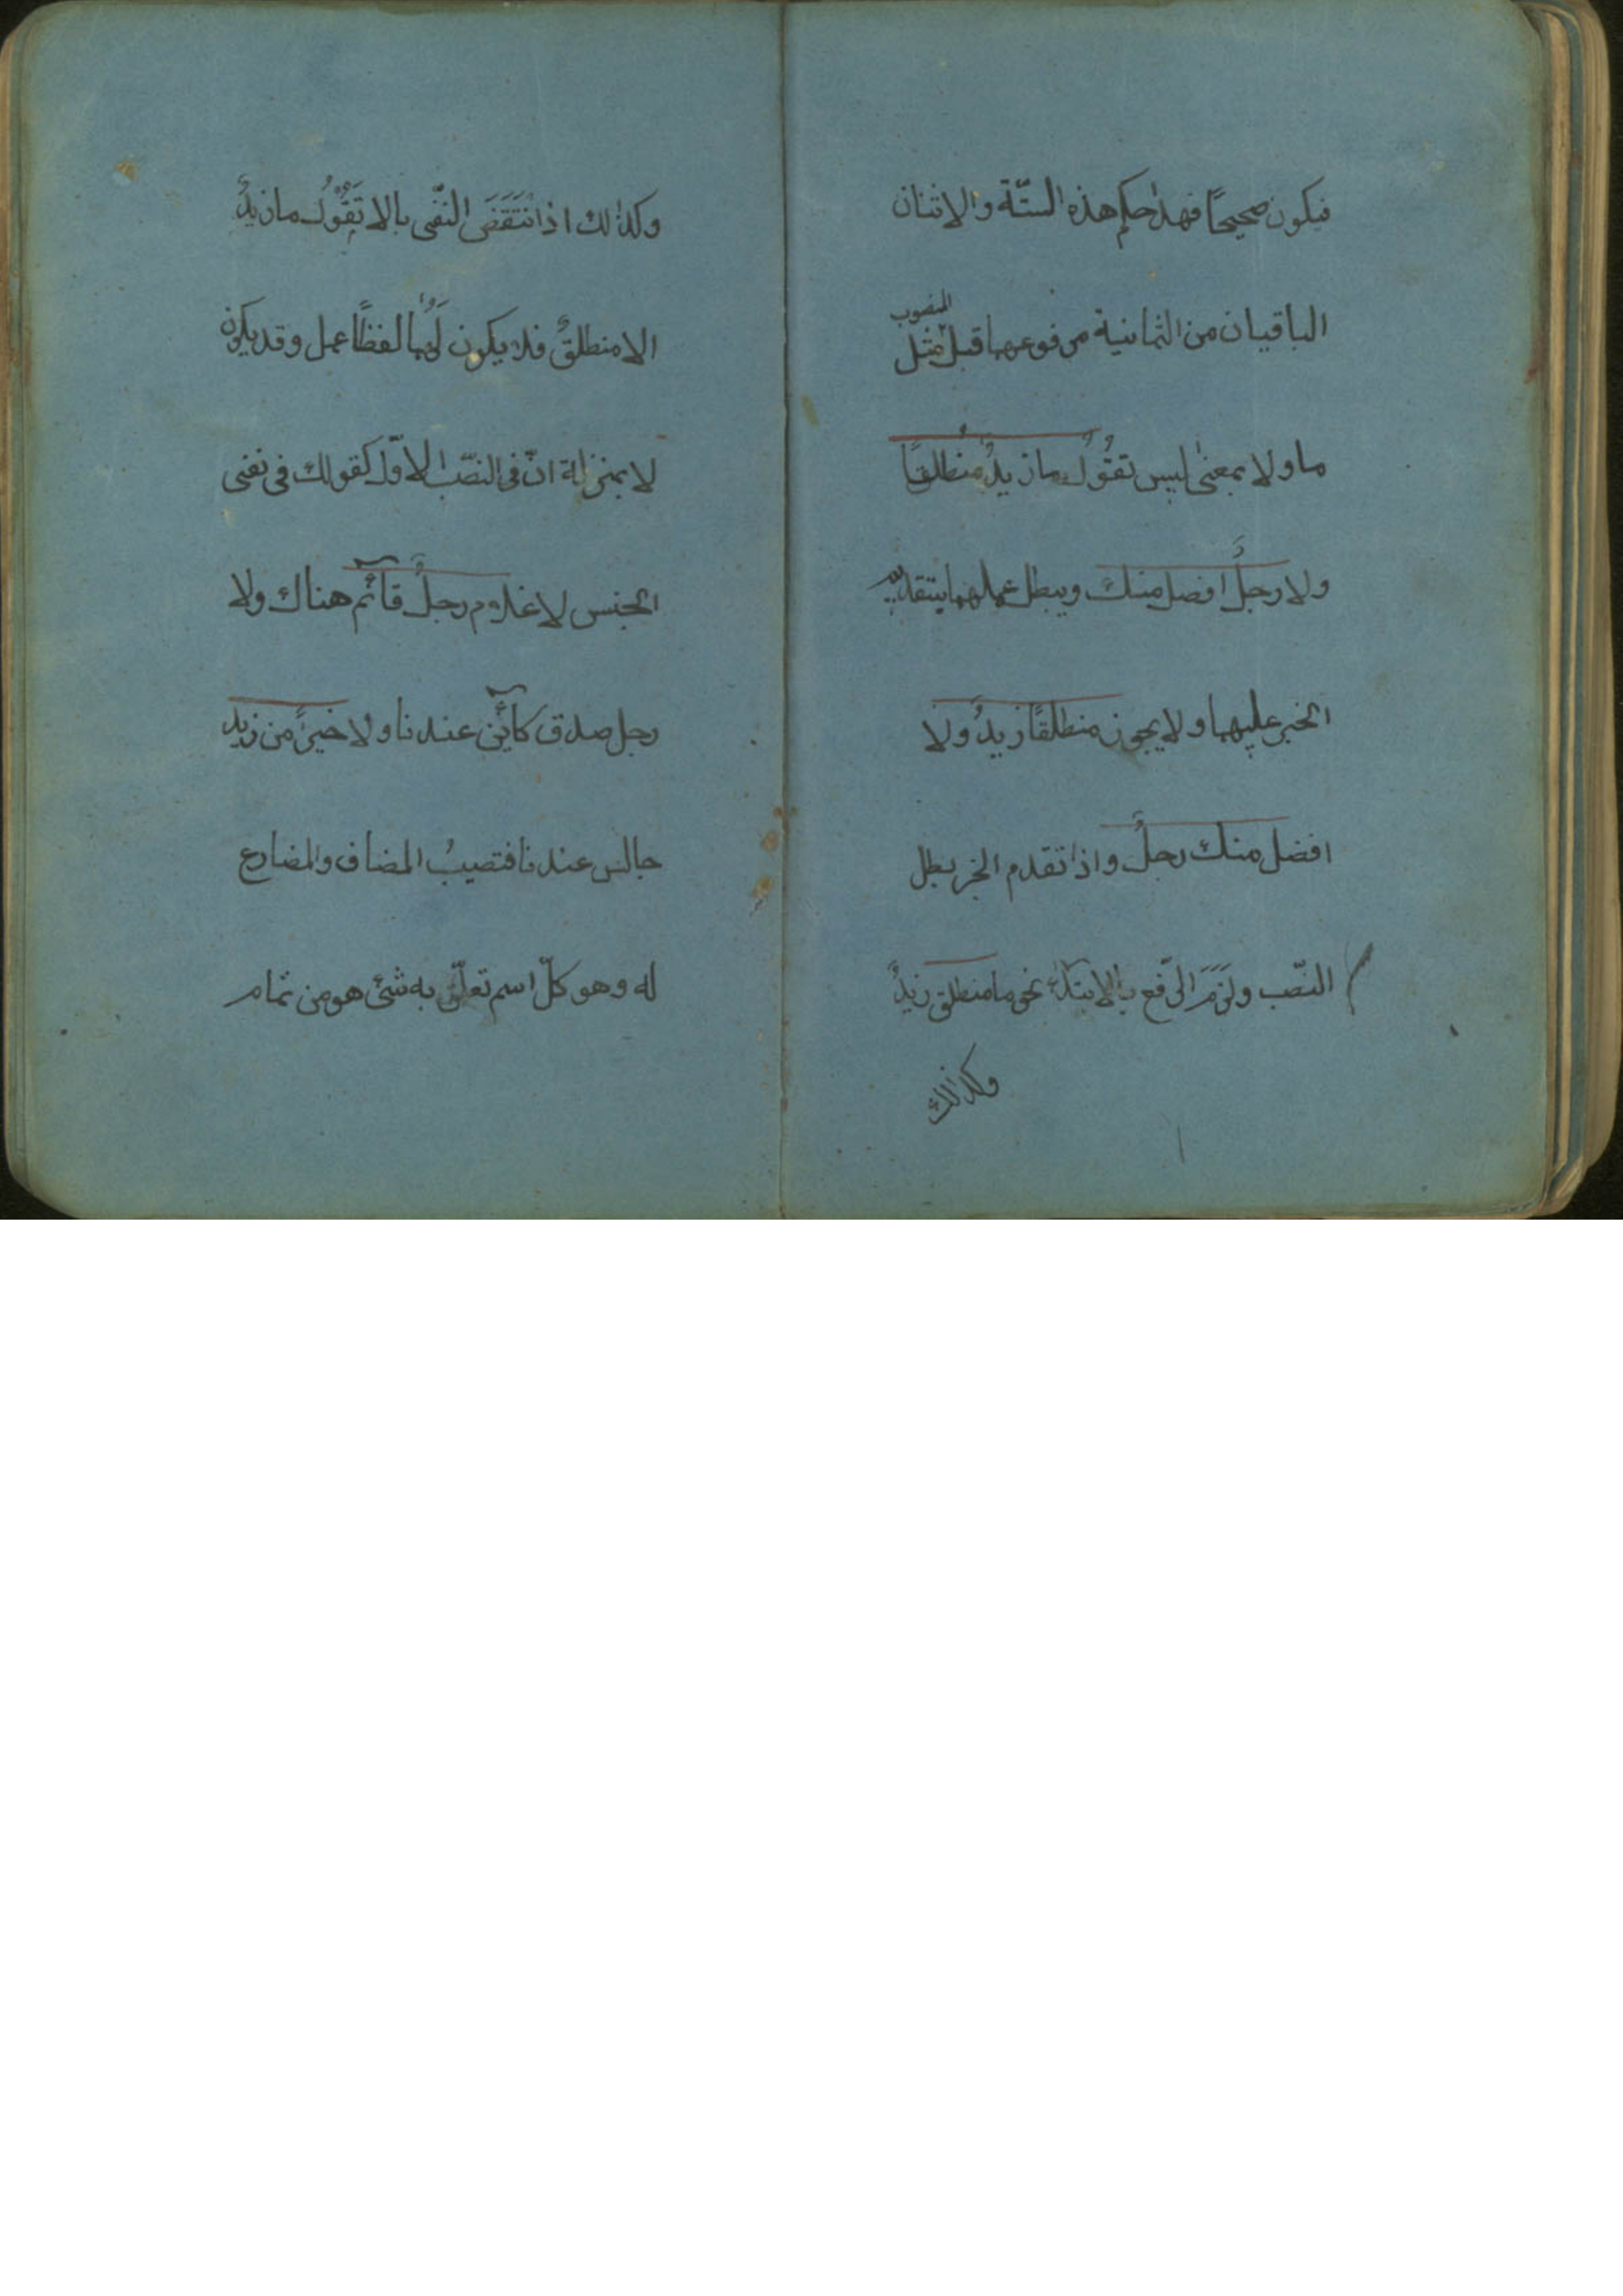 فيكون صحيحًا فهذا حكم هذه الستّة والاثنان
الباقيان من الثمانية مرفوعهما قبل المنصوب مثل
ما ولا بمعنى ليس تقُولُ ما زيدٌ مُنطلقًا
ولا رجلٌ افضل منك ويبطل عملهما بتقديم
الخبر عليهما ولا يجوز منطلقًا زيدٌ ولا
افضل منك رجلٌ واذا تقدم الخبر بطل
النصّب ولَزَمَ الرّفع بالابتداء نحو ما منطلق زيدٌ
وكذالك
وكذالك اذا نتَقَضَ النفّى بالا تَقُوُلُ ما زيدٌ
الا منطلقٌ فلا يكون لَهُما لفظًا عمل وقد يكون
لا بمنزلة انّ فى النصّب الاوّل كقولك فى نفى
الجنس لا غلام رجلٍ قائم هناك ولا
رجل صدق كائن عندنا ولا خيرًا من زيد
جالس عندنا فتصيبُ المضاف والمضارع
له وهو كلّ اسم تعلّق به شئ هو من تمام